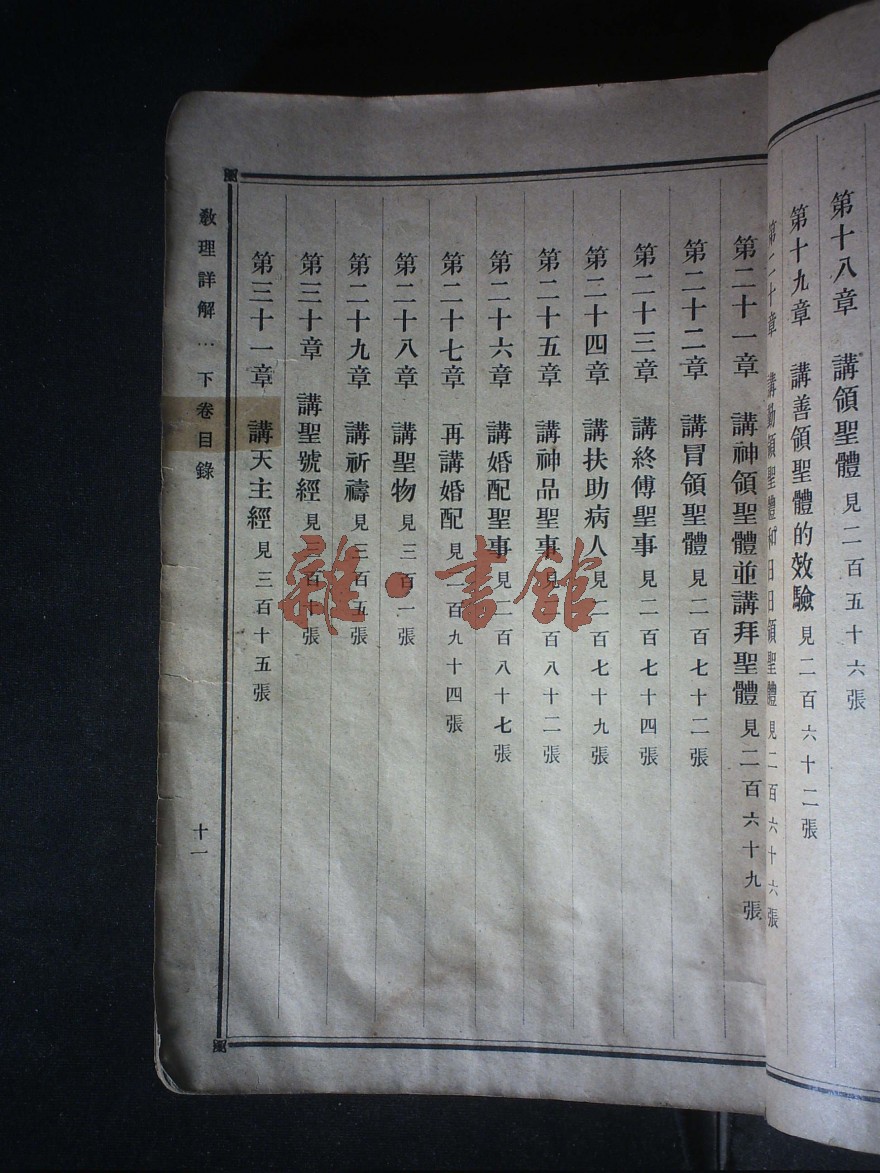 第十八章 講領聖體 見二百五十六張
第十九章 講善領聖體的效驗 見二百六十二張
第二十章 講勤領聖體和日日領聖體 見二百六十六張
第二十一章 講神領聖體並講拜聖體 見二百六十九張
第二十二章 講冒領聖體 見二百七十二張
第二十三章 講終傅聖事 見二百七十四張
第二十四章 講扶助病人 見二百七十九張
第二十五章 講神品聖事 見二百八十二張
第二十六章 講婚配聖事 見二百八十七張
第二十七章 再講婚配 見二百九十四張
第二十八章 講聖物 見三百一張
第二十九章 講祈禱 見三百五張
第三十章 講聖號經 見三百十張
第三十一章 講天主經 見三百十五張
教理詳解…下卷目錄
十一
雜·書館